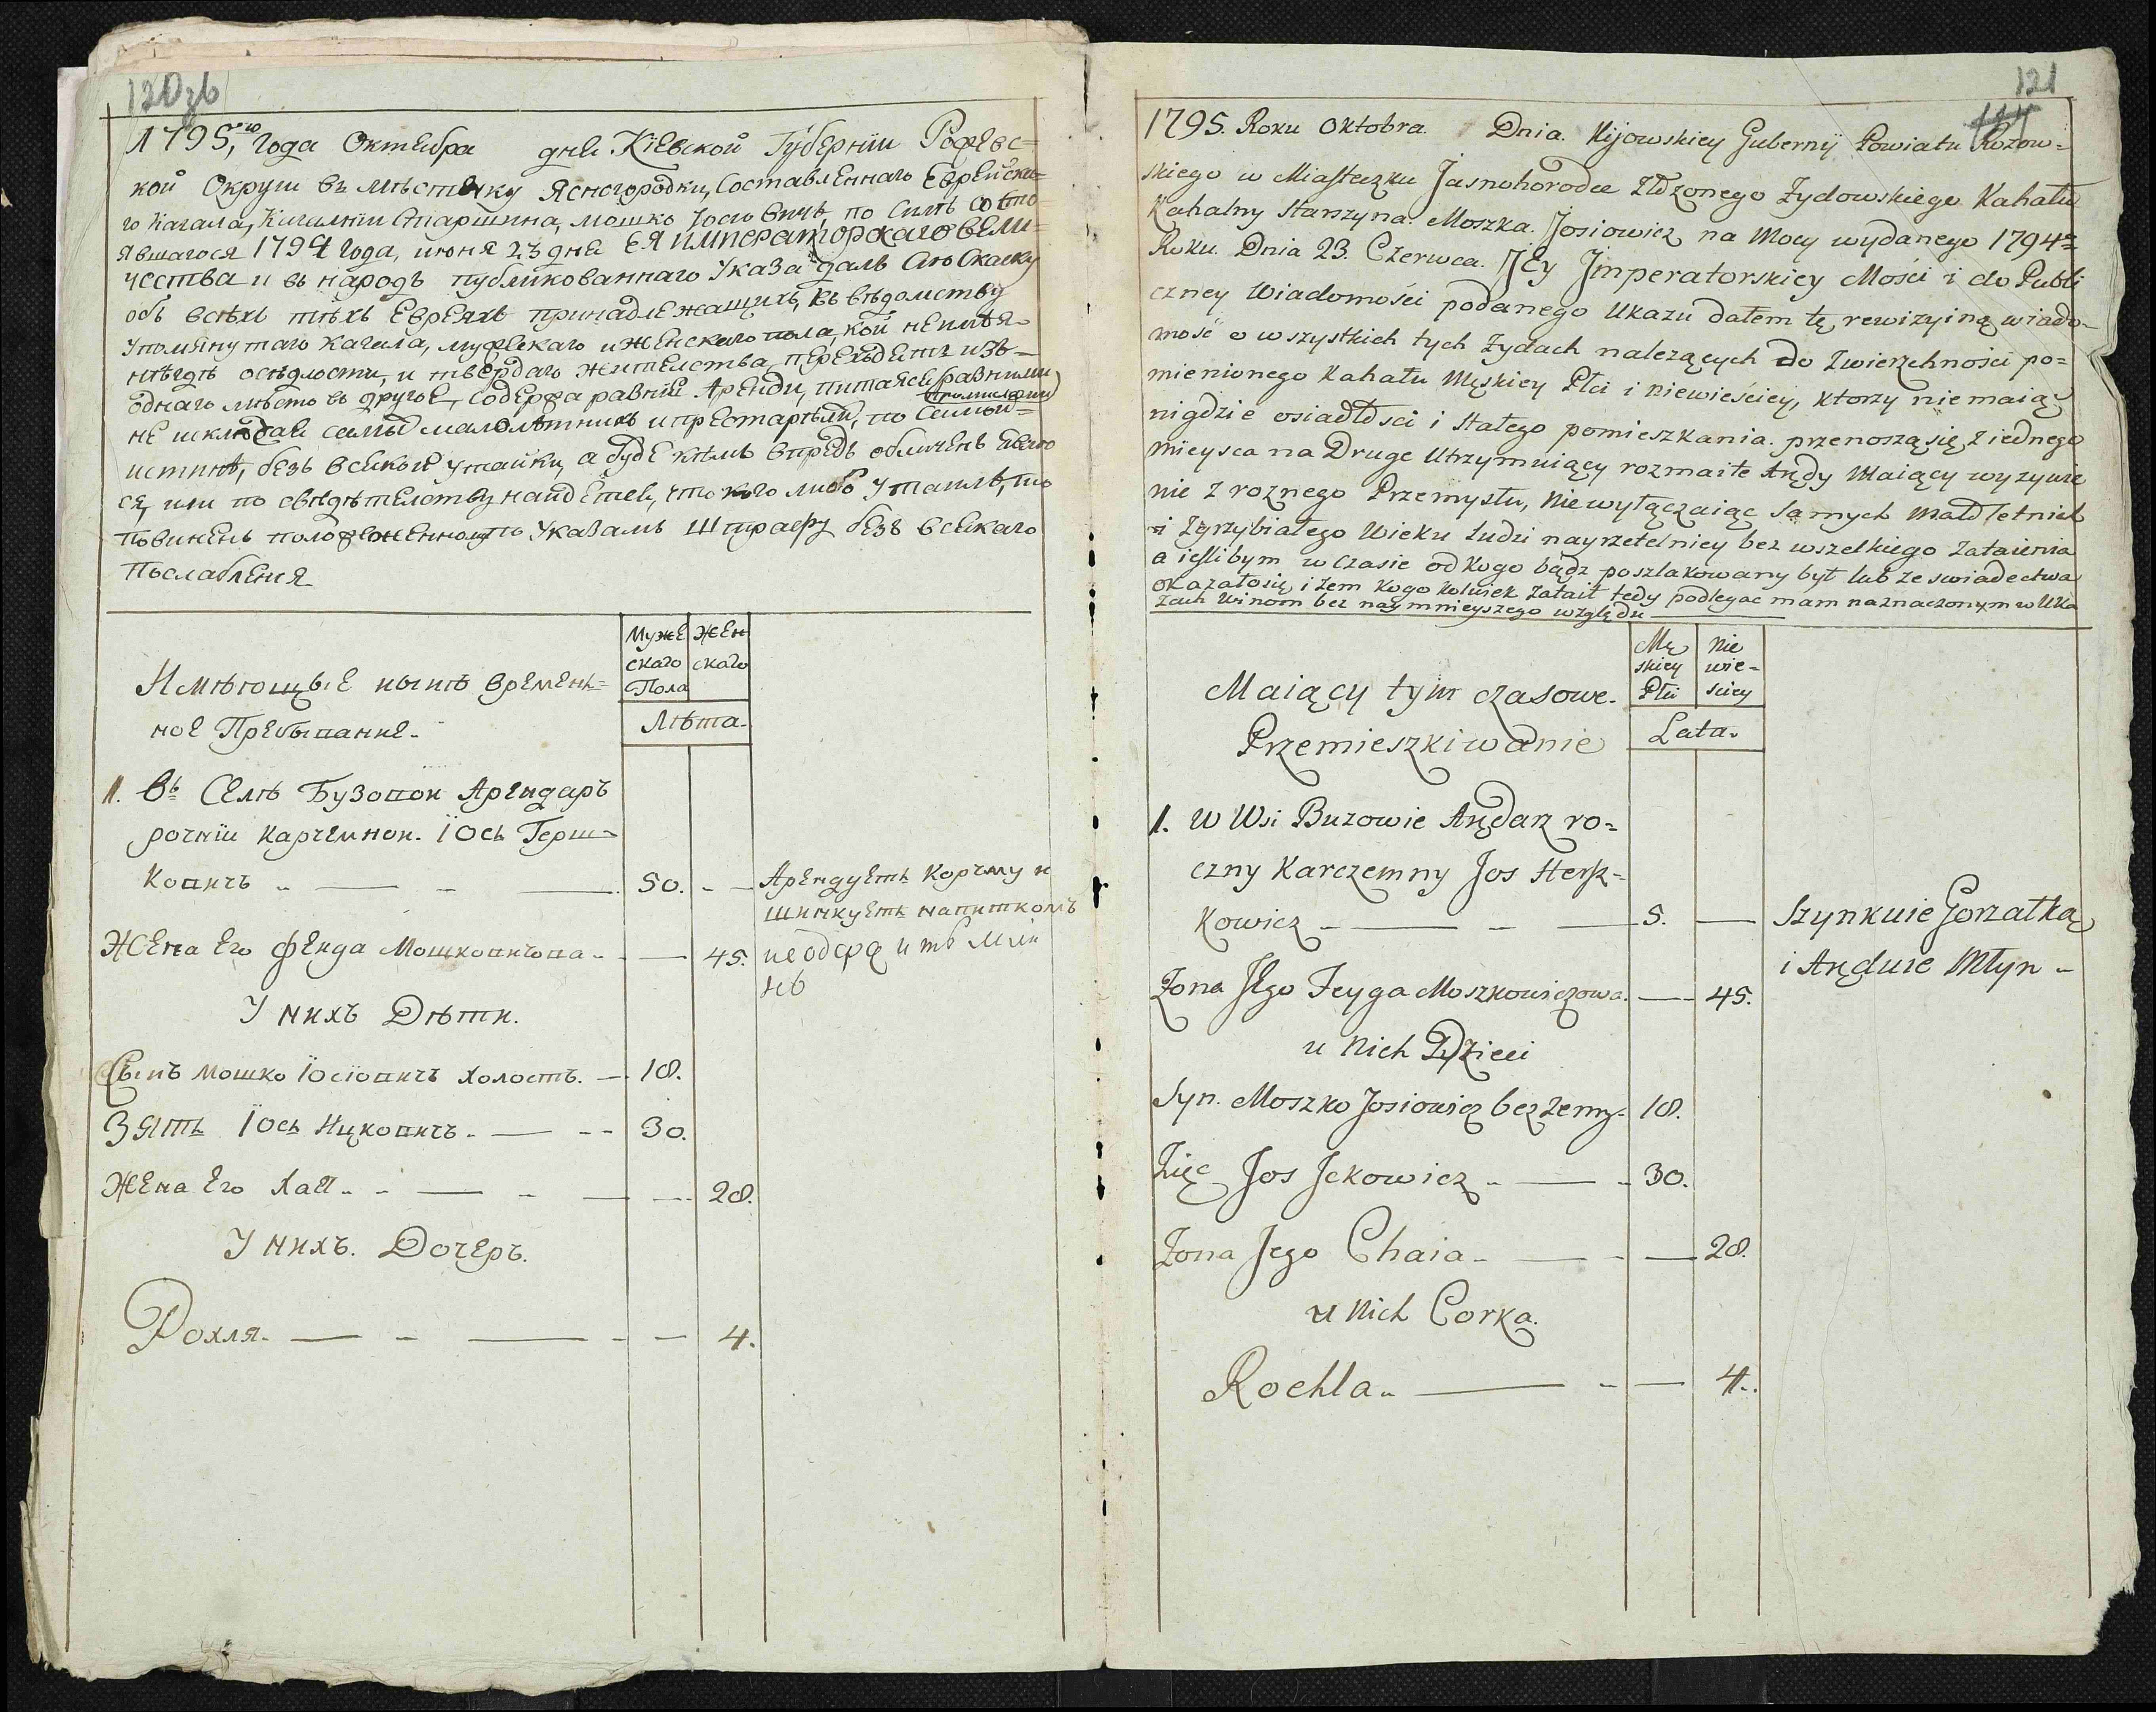 120зв
1795,го Года Октебра дне Кіевской Губерніи Рожевс=
кой Округи въ мѣстечку Ясногородки, Составленнаго Еврейска-
го Кагала, Кагалніи Старшина, мошко Іосіовичъ, по Силѣ состо
явшагося 1794 Года, июня 23 дне Ея императорскаго вели=
чества и въ народъ публикованнаго Указа далъ Сію Скаску
объ всѣхъ тѣхъ Евреяхъ принадлежащихъ, къ вѣдомству
упомянутаго Кагала, мужескаго и женскаго пола, кои неимѣя-
нѣгдѣ осѣдлости, и твердаго жителства, переходетъ изъ-
однаго мѣсто въ другое, содержа равніе Аренди, питаясе равними
промислами
не исклюдае самыд малолѣтнихъ и престарѣлй, по Самой=
истинѣ, безъ всякой утайки, а буде кемъ впредь обличенъ явлю
ся, или по свѣдѣтелству найдетсе, что кого либо утаилъ, то
повиненъ положенному по Указамъ Штрафу безъ всекаго
послабленія
Имѣющые нынѣ времен=
ное Пребыванне-
Муже
скаго
Пола
Жен
скаго
Лѣта-
1. Въ Селѣ Бузовой Арендаръ
рочній карчемной. Іось Герш-
ковичъ - — - — 50. - —
Арендуетъ Корчму и
шинкуетъ напиткомъ
исодержитъ мли
нъ
Жена Его Фейга Мошковичова - - — 45.
У нихъ Дѣти.
Сынъ мошко Іосіовичъ холостъ. — 18.
Зять Іось Ицковичъ - — - - 30.
Жена Его Хая - - — - — — 28.
У нихъ. Дочеръ.
Рохля - — - — - — 4.
121
1795. Roku Oktobra. Dnia. Kijowskiey Guberny Powiatu Rozow=
skiego w Miasteczku Jasnohorodce Złożonego Żydowskiego Kahału
Kahalny Starszyna. Moszka. Josiowicz na Mocy wydanego 1794
Roku. Dnia 23. Czerwca. JEy Jmperatorskiey Mości i do Publi
czney Wiadomości podanego Ukazu dałem tę rewizyiną wiado-
mość o wszystkich tych Żydach należących do Zwierzchności po=
mienionego Kahału Męskiey Płci i niewieściey, ktorzy nie maią
nigdzie osiadłości i stałego pomieszkania. przenoszą się z iednego
mieysca na Druge Utrzymuiący rozmaite Arędy Maiący wyzywie
nie z roznego Przemysłu, Nie wyłączaiąc samych małoletnich
i Zgrzybiałego Wieku Ludzi nayrzetelniey bez wszelkiego Zataienia
a ieślibym w czasie od Kogo bądz poszlakowany był lub ze swiadectwa
okazałosię i żem Kogo Kolwiek Zataił tedy podlegac mam naznaczonym w Uka
zach Winom bez naymnieyszego względu
Maiący tym czasowe.
Przemieszkiwanie
Mę
skiey
Płci
Nie
wie=
sciey
Lata.
1. W Wsi Buzowie Arędarz ro=
czny Karczemny Jos Hersz-
kowicz - — - — 5. —
Szynkuie Gorzałką
i Aręduie Młyn -
Żona Jego Feyga Moszkowiczowa. — 45.
u Nich Dzieci
Syn. Moszko Josiowicz bez żenny- 18.
Zięć Jos Jckowicz - — - 30.
Żona Jego Chaia - — - — 28.
u Nich Corka.
Rochla - — - — 4.